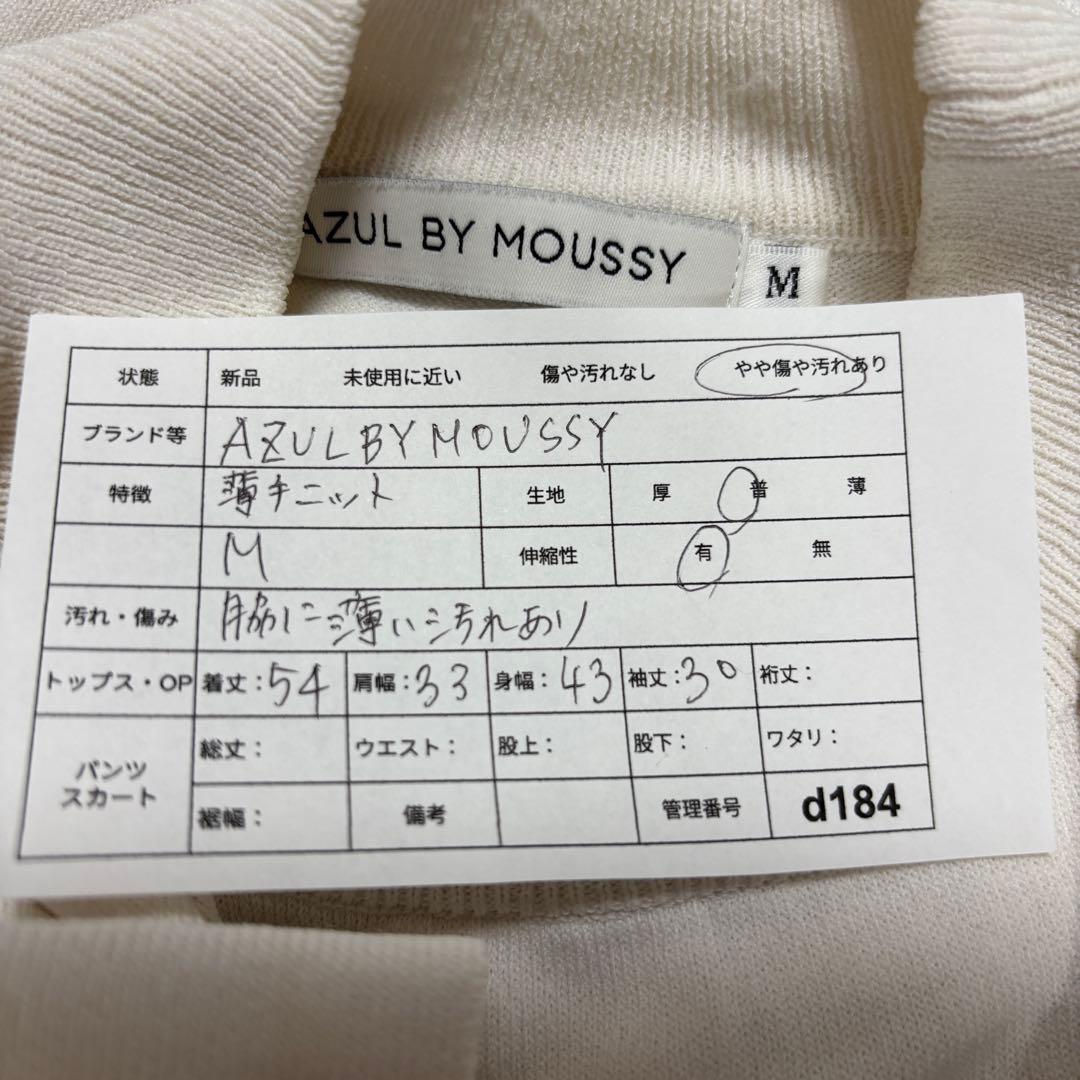 AZUL BY MOUSSY
M
状態 新品 未使用に近い 傷や汚れなし やや傷や汚れあり
ブランド等 AZUL BY MOUSSY
特徴 薄手ニット 生地 厚 普 薄
M 伸縮性 有 無
汚れ・傷み 脇に薄い汚れあり
トップス・OP 着丈:54 肩幅:33 身幅:43 袖丈:30 裄丈:
パンツ スカート 総丈: ウエスト: 股上: 股下: ワタリ:
裾幅: 備考 管理番号 d184